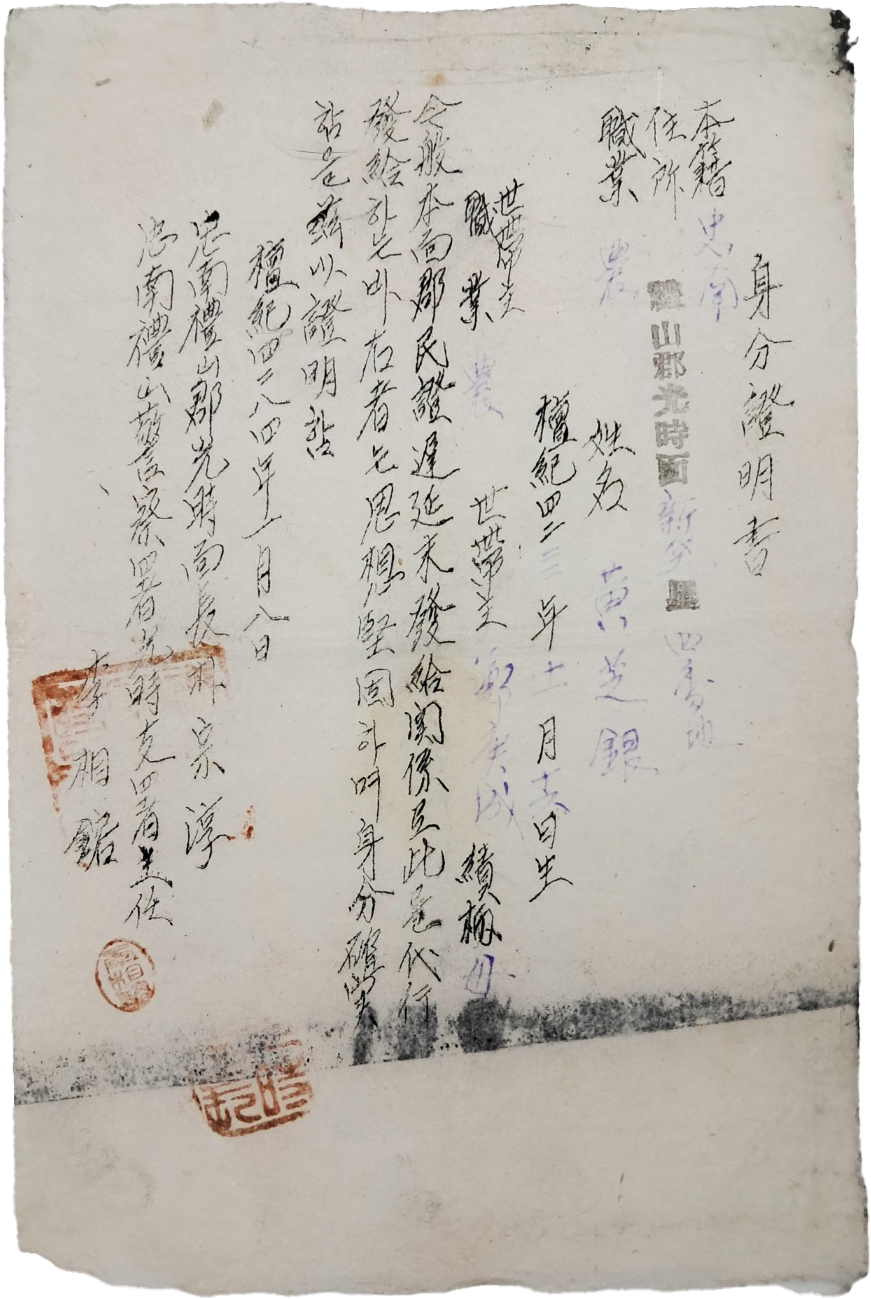 身分證明書
本籍 忠南
住所 禮山郡光時面新垈里四番地
職業 農
姓名 黃芝銀
檀紀四二三三年十一月 日生
世帶主
職業 農 世帶主 鄭庚成 續柄 母
今般本面郡民證遲延未發給関係로此를代行
發給하는바右者는思想堅固하며身分確実
함은玆以證明함
檀紀四二八四年一月八日
忠南禮山郡光時面長 朴宗淳
忠南禮山警察署光時支署主任
李相鋸